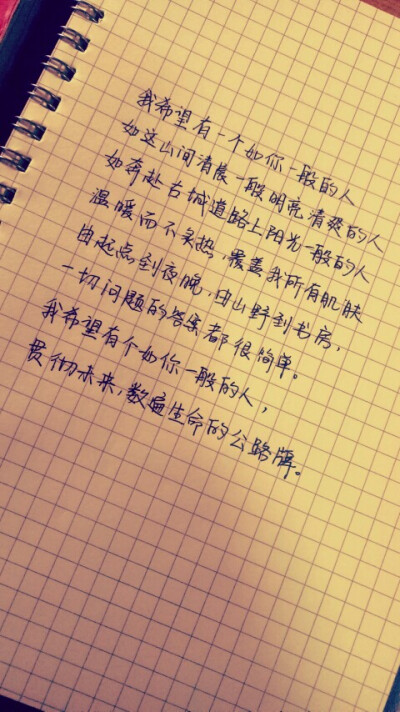 我希望有一个如你一般的人
如这山间清晨一般明亮清爽的人
如奔赴古城道路上阳光一般的人
温暖而不炙热，覆盖我所有肌肤
由起点到夜晚，由山野到书房，
一切问题的答案都很简单。
我希望有个如你一般的人，
贯彻未来，数遍生命的公路牌。